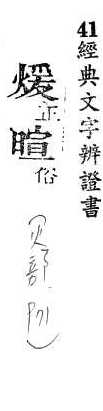 41經典文字辨證書
煖正
暄俗
火部